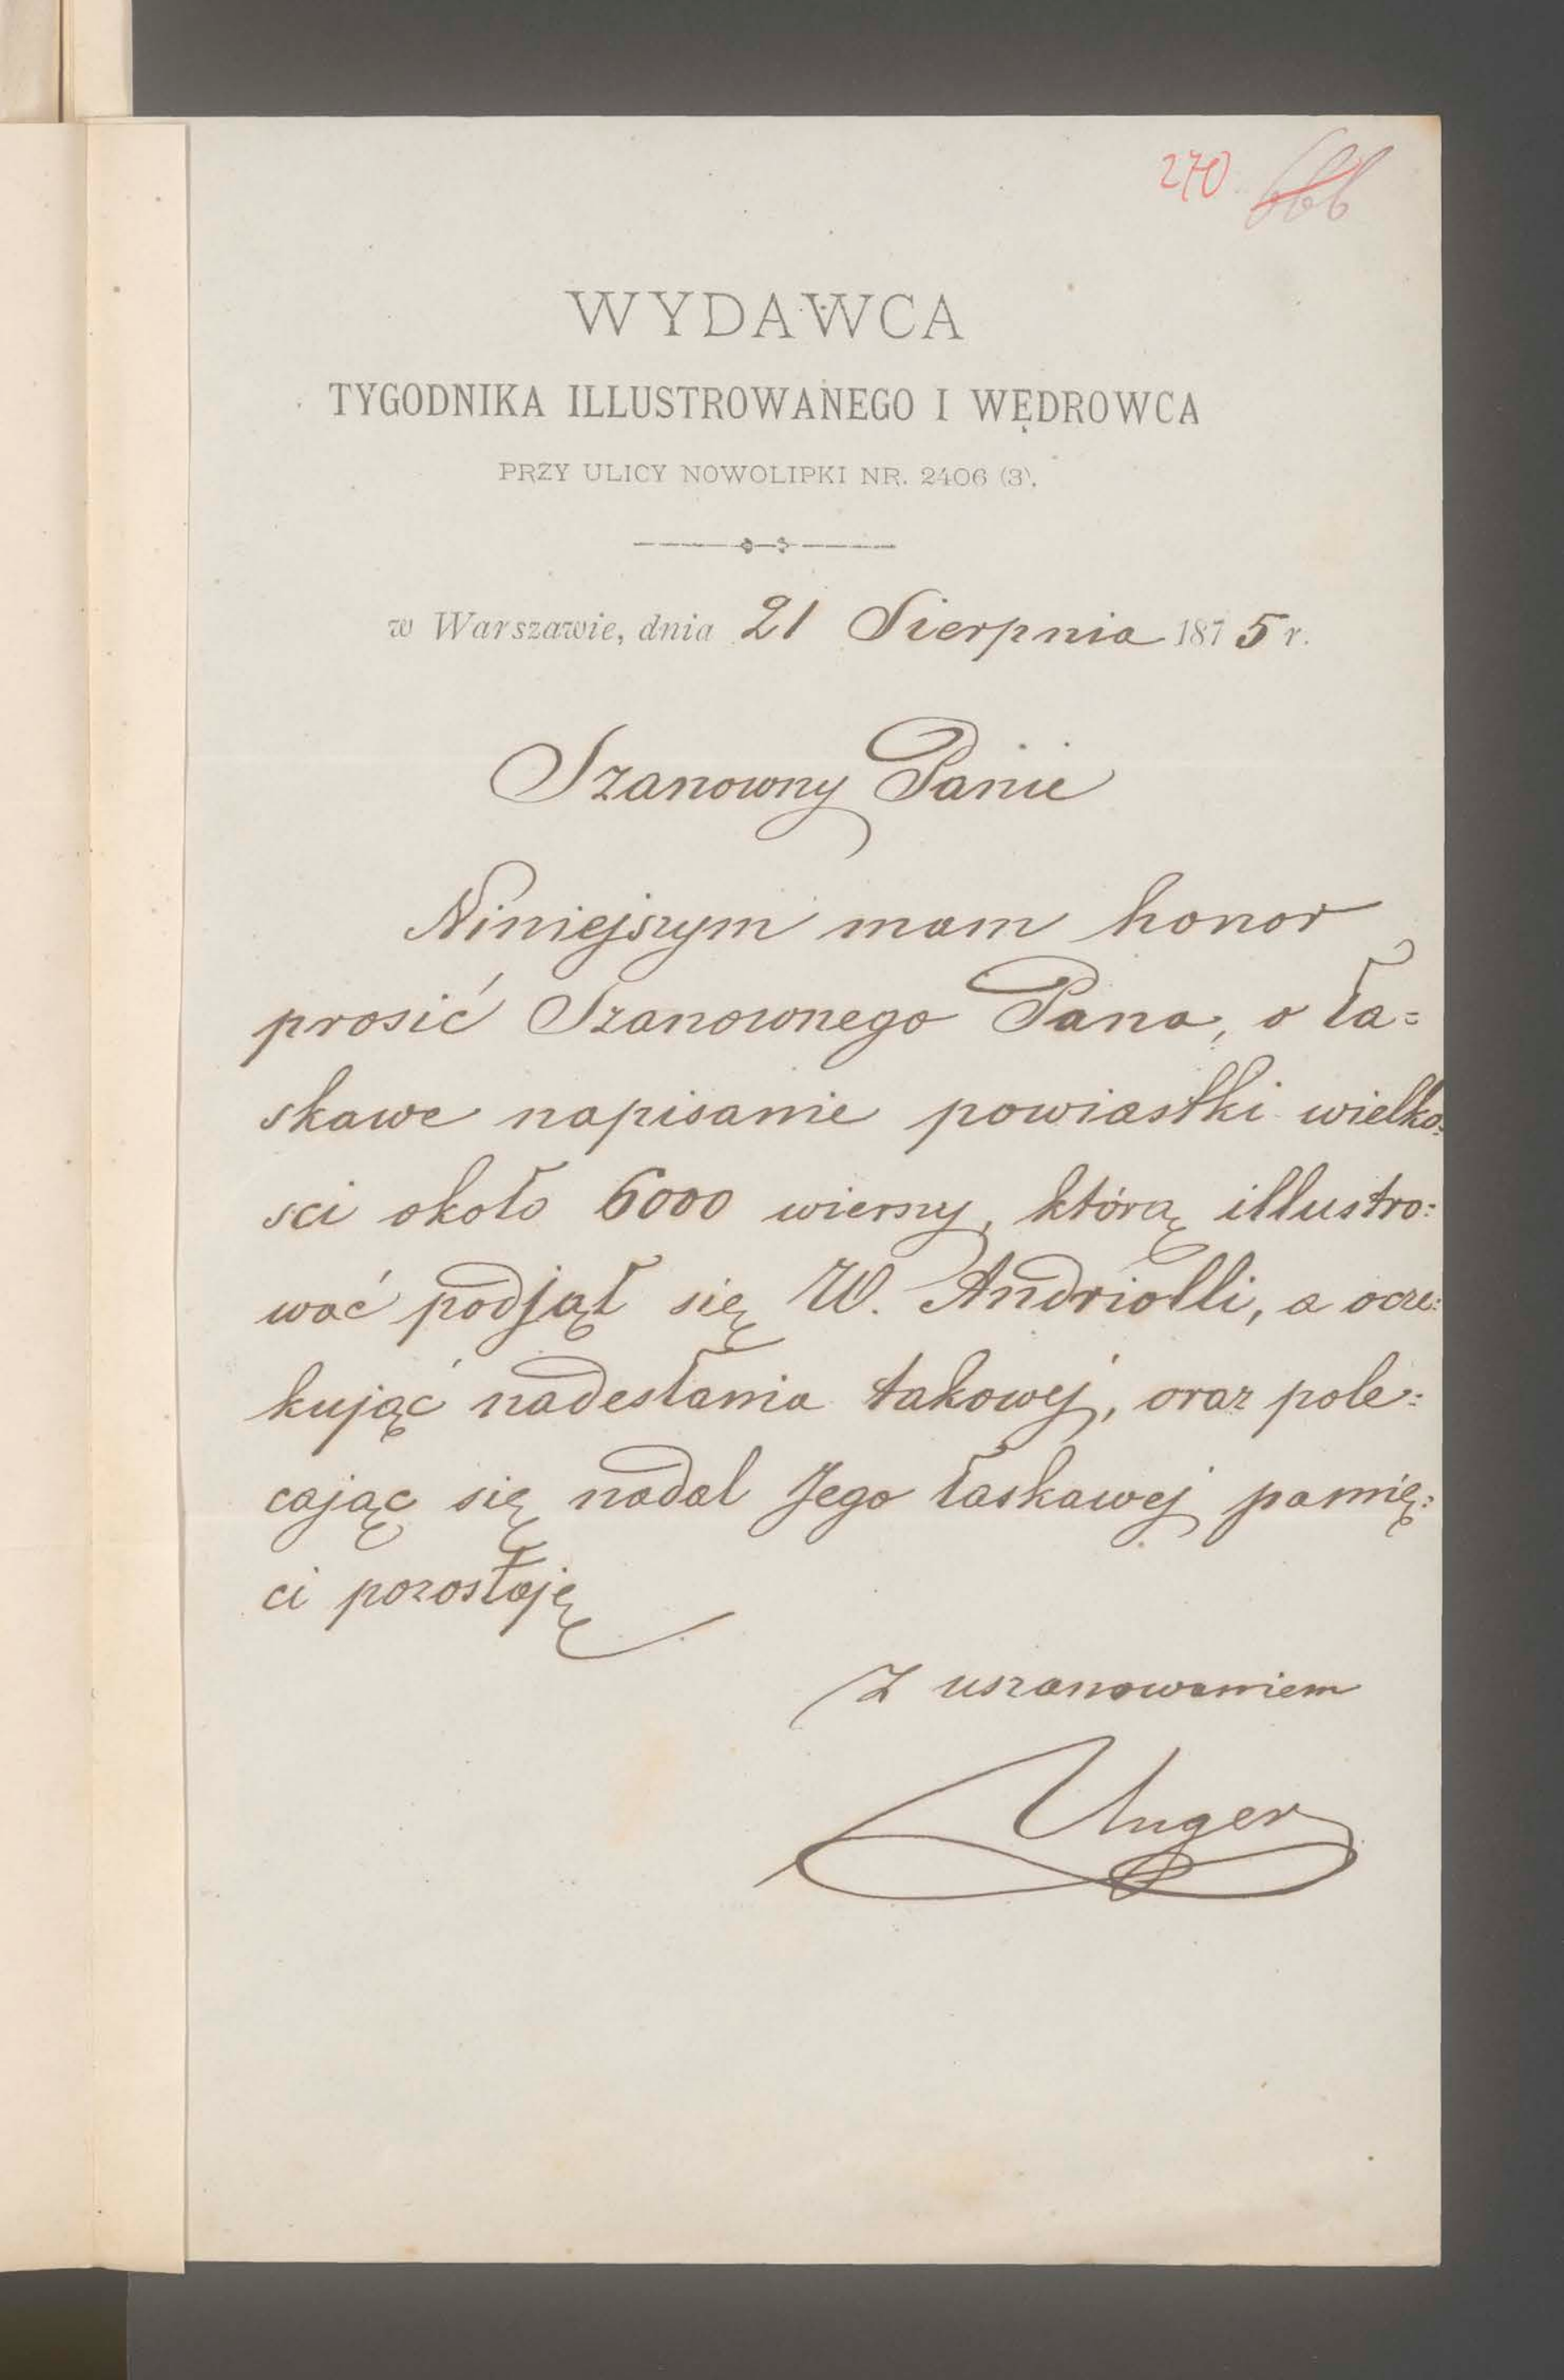 270 666
WYDAWCA
TYGODNIKA ILLUSTROWANEGO I WĘDROWCA
PRZY ULICY NOWOLIPKI NR. 2406 (3).
w Warszawie, dnia 21 Sierpnia 1875 r.
Szanowny Panie
Niniejszym mam honor
prosić Szanownego Pana, o ła=
skawe napisanie powiastki wielko=
sci około 6000 wierszy, którą illustro=
wać podjął się W. Andriolli, a ocze=
kująć nadesłania takowej, oraz pole=
cając się nadal Jego łaskawej pamię=
ci pozostaję
Z uszanowaniem
Unger